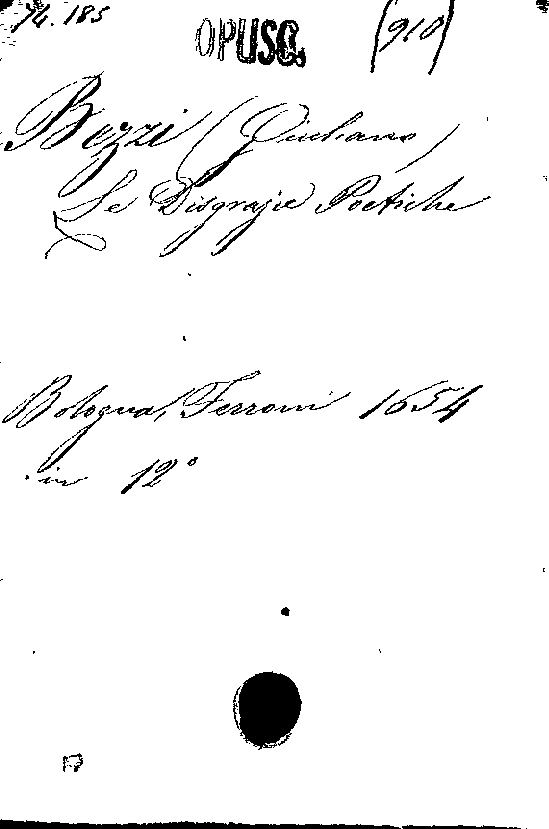 74.185 OPUSC. (910)
Bezzi (Giuliano)
Le Disgrazie Poetiche
Bologna, Ferroni 1654
in 12°